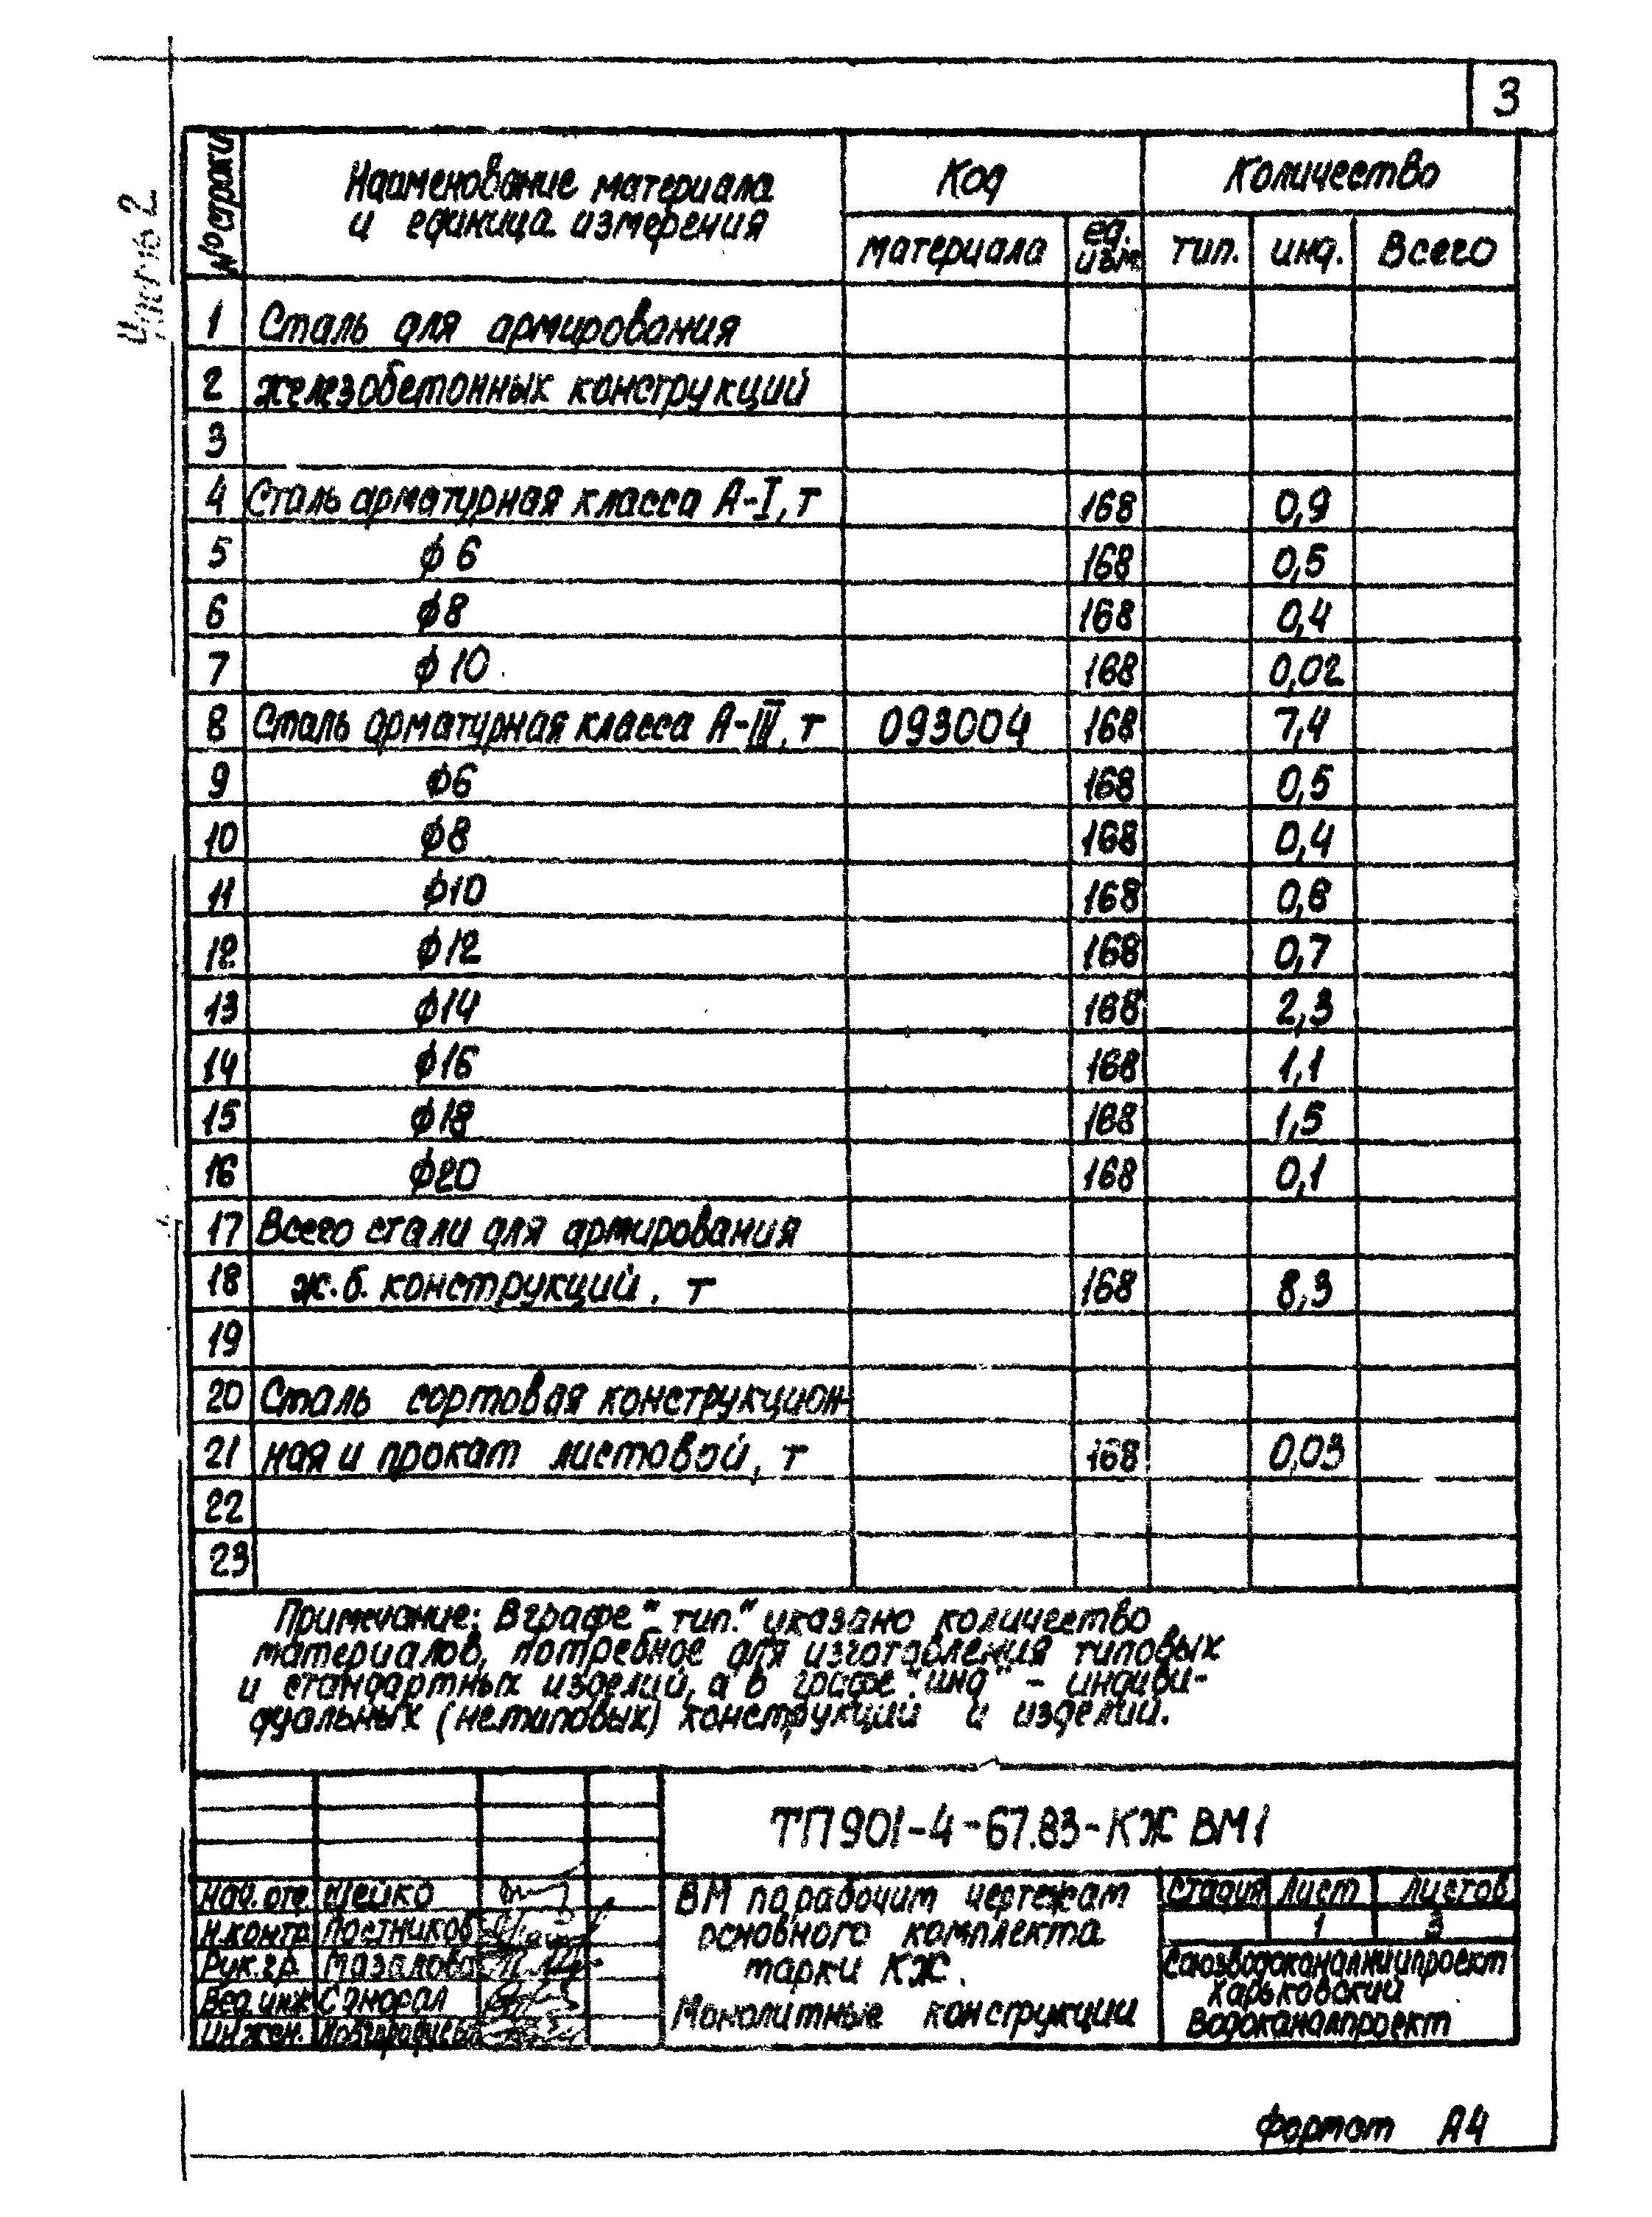 3
Часть 2
№ строки
Наименование материала
и единица измерения
Код
Количество
материала
ед.
изм.
тип.
инд.
Всего
1 Сталь для армирования
2 железобетонных конструкций
3
4 Сталь арматурная класса А-I, т 168 0,9
5 ϕ 6 168 0,5
6 ϕ 8 168 0,4
7 ϕ 10 168 0,02
8 Сталь арматурная класса А-III, т 093004 168 7,4
9 ϕ6 168 0,5
10 ϕ8 168 0,4
11 ϕ10 168 0,8
12 ϕ12 168 0,7
13 ϕ14 168 2,3
14 ϕ16 168 1,1
15 ϕ18 168 1,5
16 ϕ20 168 0,1
17 Всего стали для армирования
18 ж.б. конструкций, т 168 8,3
19
20 Сталь сортовая конструкцион-
21 ная и прокат листовой, т 168 0,03
22
23
Примечание: В графе "тип." указано количество
материалов, потребное для изготовления типовых
и стандартных изделий, а в графе "инд" - индиви-
дуальных (нетиповых) конструкций и изделий.
ТП 901-4-67.83-КЖ ВМ1
Нач. отд. Шейко
Н.контр. Постников
Рук.гр. Мазалова
Вед. инж.
Инжен.
ВМ по рабочим чертежам
основного комплекта
марки КЖ.
Монолитные конструкции
Стадия Лист Листов
1 3
Союзводоканалниипроект
Харьковский
Водоканалпроект
Формат А4